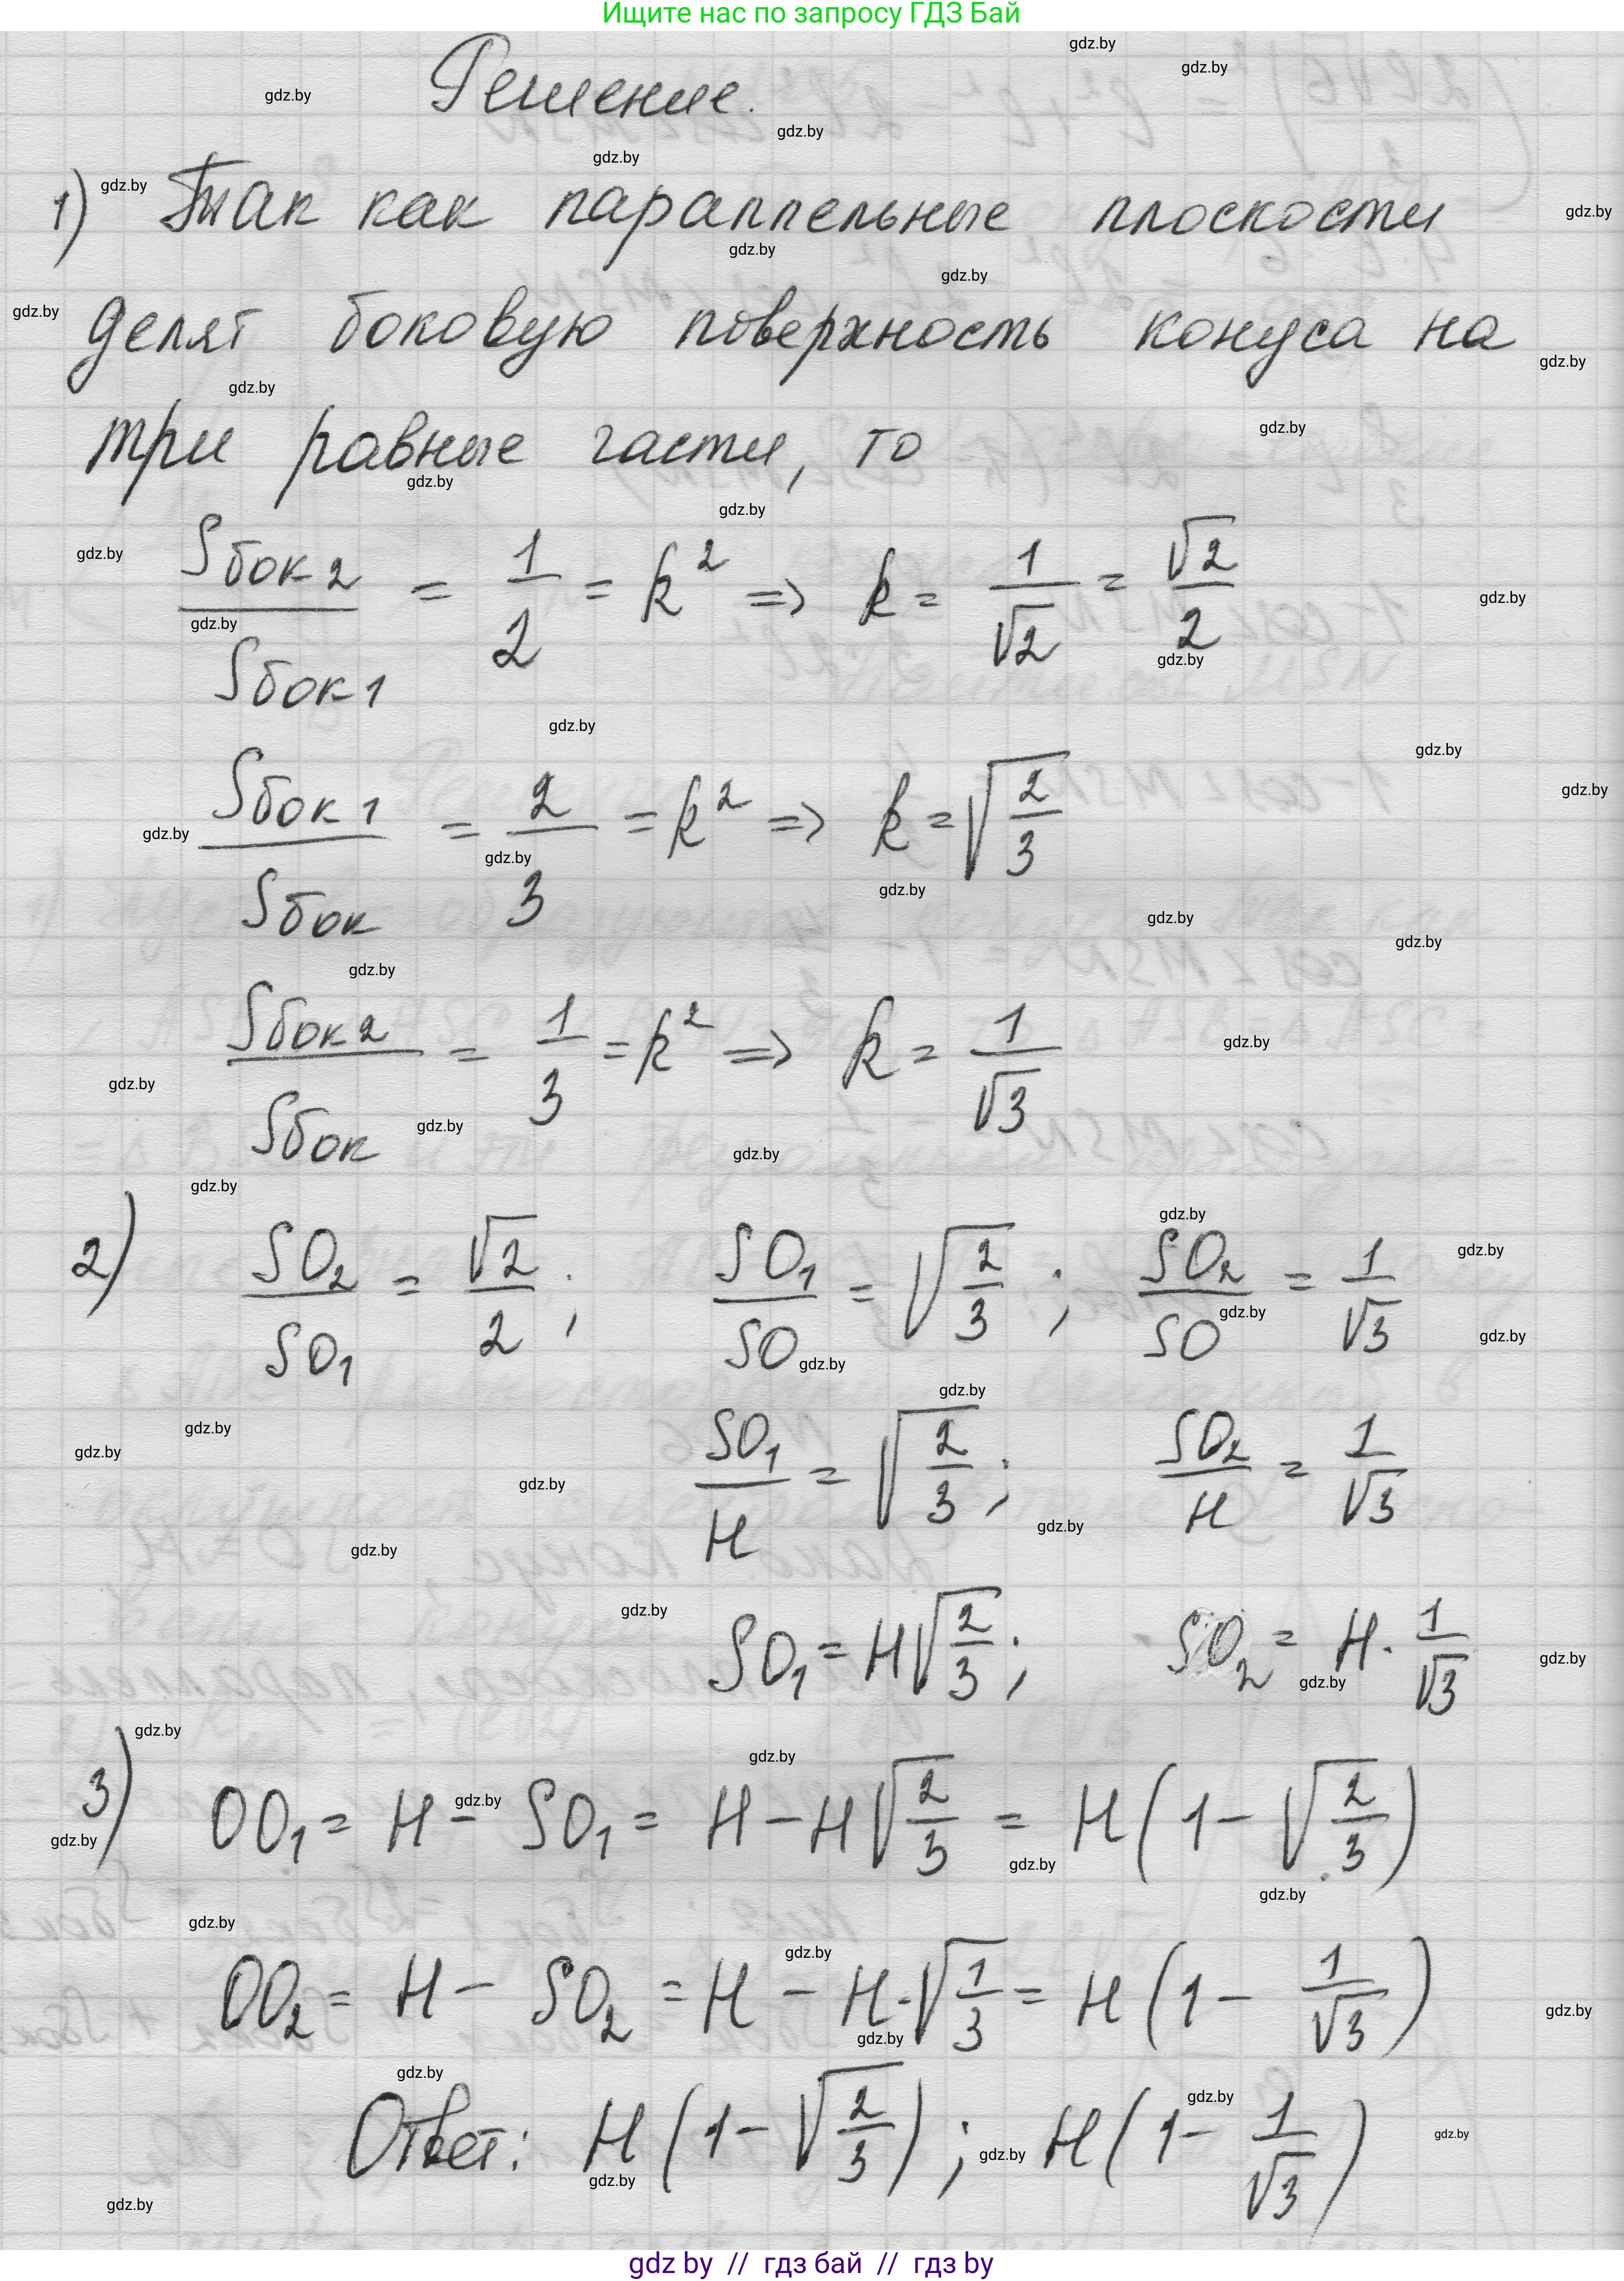 Ищите нас по запросу ГДЗ Бай
Решение.
1) Так как параллельные плоскости
делят боковую поверхность конуса на
три равные части, то
Sбок2/Sбок1 = 1/2 = k² => k = 1/√2 = √2/2
Sбок1/Sбок = 2/3 = k² => k = √(2/3)
Sбок2/Sбок = 1/3 = k² => k = 1/√3
2) SO₂/SO₁ = √2/2; SO₁/SO = √(2/3); SO₂/SO = 1/√3
SO₁/H = √(2/3); SO₂/H = 1/√3
SO₁ = H√(2/3); SO₂ = H · 1/√3
3) OO₁ = H − SO₁ = H − H√(2/3) = H(1 − √(2/3))
OO₂ = H − SO₂ = H − H·√(1/3) = H(1 − 1/√3)
Ответ: H(1 − √(2/3)); H(1 − 1/√3)
gdz by // гдз бай // гдз by